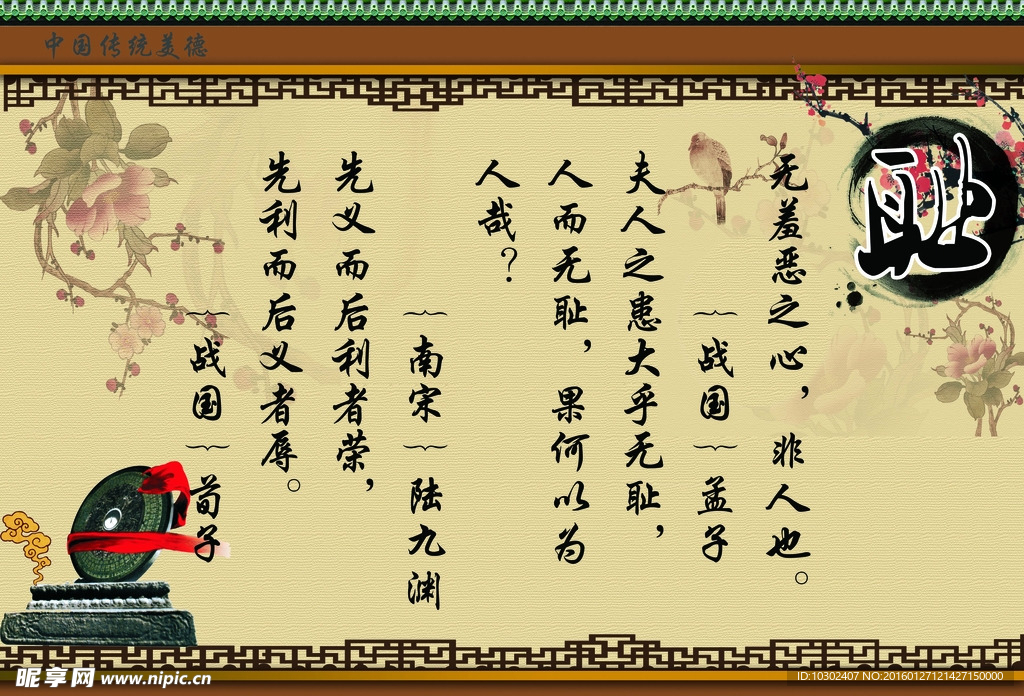 中国传统美德
耻
无羞恶之心，非人也。
（战国）孟子
夫人之患大乎无耻，
人而无耻，果何以为
人哉？
（南宋）陆九渊
先义而后利者荣，
先利而后义者辱。
（战国）荀子
昵享网 www.nipic.cn
ID:10302407 NO:20160127121427150000